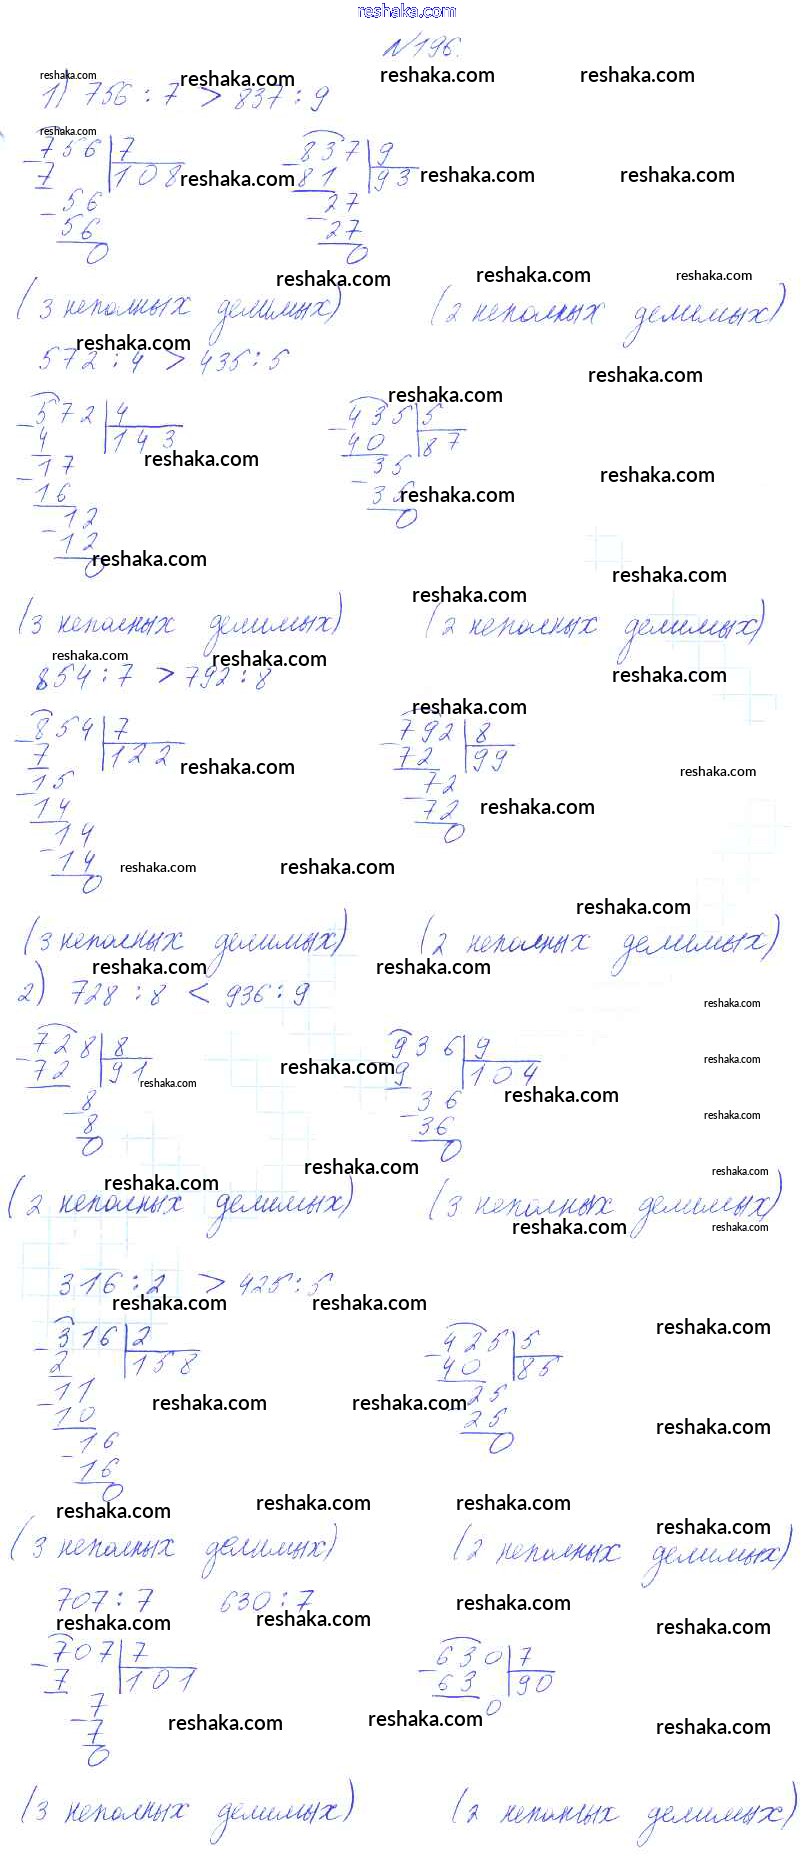 reshaka.com
№196.
1) 756 : 7 > 837 : 9
756 | 7    837 | 9
7 | 108    81 | 93
56    27
56    27
0    0
(3 неполных делимых)    (2 неполных делимых)
572 : 4 > 435 : 5
572 | 4    435 | 5
4 | 143    40 | 87
17    35
16    35
12    0
12
0
(3 неполных делимых)    (2 неполных делимых)
854 : 7 > 792 : 8
854 | 7    792 | 8
7 | 122    72 | 99
15    72
14    72
14    0
14
0
(3 неполных делимых)    (2 неполных делимых)
2) 728 : 8 < 936 : 9
728 | 8    936 | 9
72 | 91    9 | 104
8    36
8    36
0    0
(2 неполных делимых)    (3 неполных делимых)
316 : 2 > 425 : 5
316 | 2    425 | 5
2 | 158    40 | 85
11    25
10    25
16    0
16
0
(3 неполных делимых)    (2 неполных делимых)
707 : 7    630 : 7
707 | 7    630 | 7
7 | 101    63 | 90
7    0
7
0
(3 неполных делимых)    (2 неполных делимых)